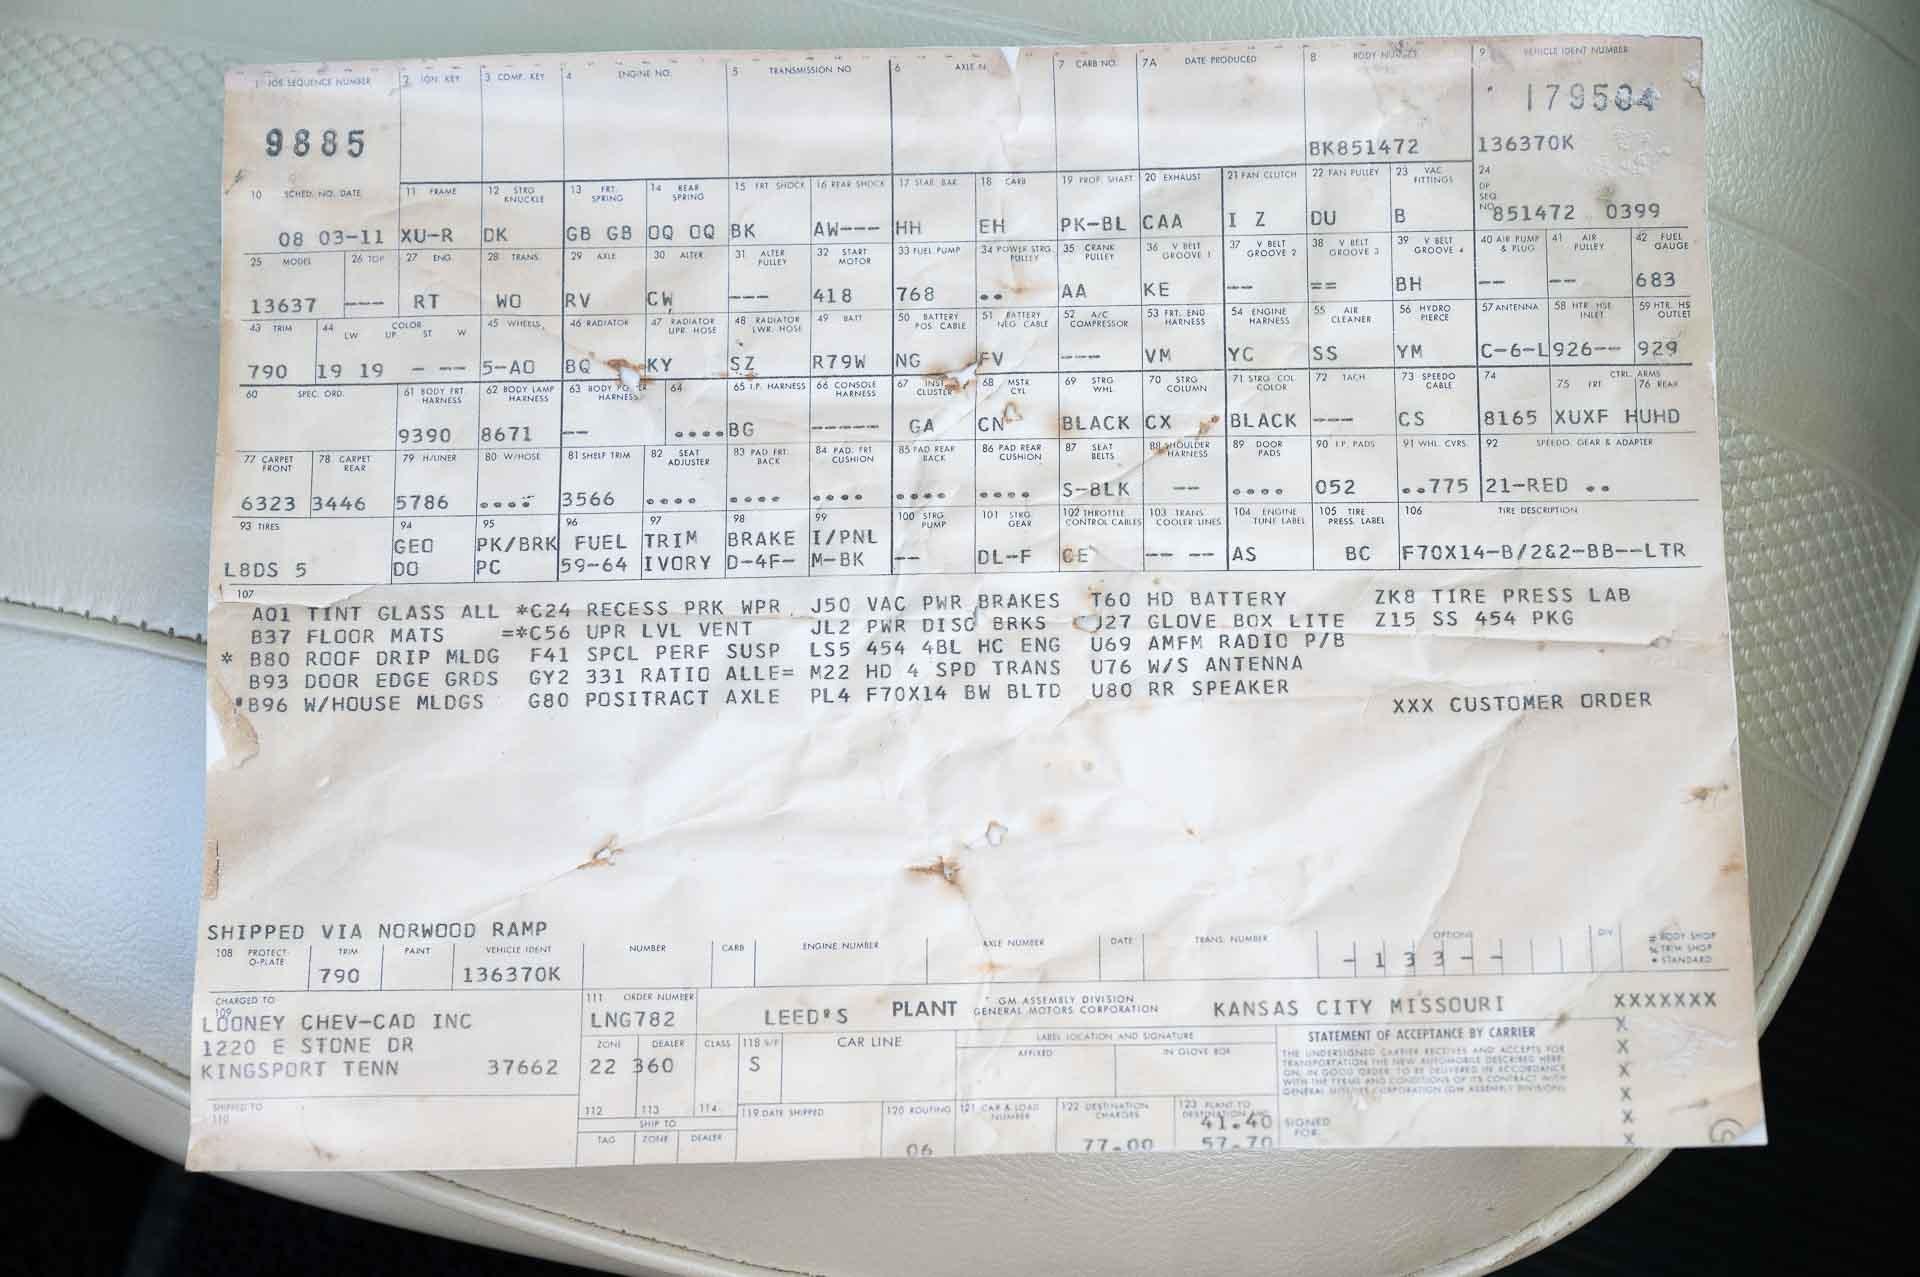 1 JOB SEQUENCE NUMBER 2 IGN. KEY 3 COMP. KEY 4 ENGINE NO. 5 TRANSMISSION NO 6 AXLE N 7 CARB NO. 7A DATE PRODUCED 8 BODY NUMBER 9 VEHICLE IDENT NUMBER
9885 BK851472 179504
136370K
10 SCHED. NO. DATE 11 FRAME 12 STRG KNUCKLE 13 FRT. SPRING 14 REAR SPRING 15 FRT SHOCK 16 REAR SHOCK 17 STAB. BAR. 18 CARB 19 PROP. SHAFT 20 EXHAUST 21 FAN CLUTCH 22 FAN PULLEY 23 VAC. FITTINGS 24 DP SEQ NO.
08 03-11 XU-R DK GB GB OQ OQ BK AW--- HH EH PK-BL CAA I Z DU B 851472 0399
25 MODEL 26 TOP 27 ENG. 28 TRANS. 29 AXLE 30 ALTER 31 ALTER PULLEY 32 START MOTOR 33 FUEL PUMP 34 POWER STRG. PULLEY 35 CRANK PULLEY 36 V BELT GROOVE 1 37 V BELT GROOVE 2 38 V BELT GROOVE 3 39 V BELT GROOVE 4 40 AIR PUMP & PLUG 41 AIR PULLEY 42 FUEL GAUGE
13637 --- RT WO RV CW --- 418 768 .. AA KE -- == BH -- -- 683
43 TRIM 44 LW COLOR UP ST W 45 WHEELS 46 RADIATOR 47 RADIATOR UPR. HOSE 48 RADIATOR LWR. HOSE 49 BATT 50 BATTERY POS. CABLE 51 BATTERY NEG. CABLE 52 A/C COMPRESSOR 53 FRT. END HARNESS 54 ENGINE HARNESS 55 AIR CLEANER 56 HYDRO PIERCE 57 ANTENNA 58 HTR. HSE INLET 59 HTR. HS OUTLET
790 19 19 - --- 5-AO BQ KY SZ R79W NG FV --- VM YC SS YM C-6-L 926-- 929
60 SPEC. ORD. 61 BODY FRT HARNESS 62 BODY LAMP HARNESS 63 BODY POWER HARNESS 64 65 I.P. HARNESS 66 CONSOLE HARNESS 67 INST. CLUSTER 68 MSTR CYL 69 STRG WHL. 70 STRG COLUMN 71 STRG. COL COLOR 72 TACH 73 SPEEDO CABLE 74 CTRL. ARMS 75 FRT 76 REAR
9390 8671 -- .... BG ---- GA CN BLACK CX BLACK --- CS 8165 XUXF HUHD
77 CARPET FRONT 78 CARPET REAR 79 H/LINER 80 W/HOSE 81 SHELF TRIM 82 SEAT ADJUSTER 83 PAD FRT. BACK 84 PAD. FRT CUSHION 85 PAD REAR BACK 86 PAD REAR CUSHION 87 SEAT BELTS 88 SHOULDER HARNESS 89 DOOR PADS 90 I.P. PADS 91 WHL. CVRS. 92 SPEEDO. GEAR & ADAPTER
6323 3446 5786 .... 3566 .... .... .... .... .... S-BLK -- .... 052 ..775 21-RED ..
93 TIRES 94 95 96 97 98 99 100 STRG PUMP 101 STRG. GEAR 102 THROTTLE CONTROL CABLES 103 TRANS COOLER LINES 104 ENGINE TUNE LABEL 105 TIRE PRESS. LABEL 106 TIRE DESCRIPTION
GEO PK/BRK FUEL TRIM BRAKE I/PNL
L8DS 5 DO PC 59-64 IVORY D-4F- M-BK -- DL-F CE -- -- AS BC F70X14-B/2&2-BB--LTR
107
A01 TINT GLASS ALL *C24 RECESS PRK WPR J50 VAC PWR BRAKES T60 HD BATTERY ZK8 TIRE PRESS LAB
B37 FLOOR MATS =*C56 UPR LVL VENT JL2 PWR DISC BRKS U27 GLOVE BOX LITE Z15 SS 454 PKG
* B80 ROOF DRIP MLDG F41 SPCL PERF SUSP LS5 454 4BL HC ENG U69 AMFM RADIO P/B
B93 DOOR EDGE GRDS GY2 331 RATIO ALLE= M22 HD 4 SPD TRANS U76 W/S ANTENNA
*B96 W/HOUSE MLDGS G80 POSITRACT AXLE PL4 F70X14 BW BLTD U80 RR SPEAKER
XXX CUSTOMER ORDER
SHIPPED VIA NORWOOD RAMP
108 PROTECT-O-PLATE TRIM PAINT VEHICLE IDENT NUMBER CARB ENGINE NUMBER AXLE NUMBER DATE TRANS. NUMBER OPTIONS DIV # BODY SHOP
% TRIM SHOP
* STANDARD
790 136370K - 1 3 3 - -
CHARGED TO 109 111 ORDER NUMBER
LOONEY CHEV-CAD INC LNG782 LEED'S PLANT GM ASSEMBLY DIVISION GENERAL MOTORS CORPORATION KANSAS CITY MISSOURI XXXXXXX
1220 E STONE DR ZONE DEALER CLASS 118 CAR LINE LABEL LOCATION AND SIGNATURE STATEMENT OF ACCEPTANCE BY CARRIER X
KINGSPORT TENN 37662 22 360 S AFFIXED IN GLOVE BOX X
THE UNDERSIGNED CARRIER RECEIVES AND ACCEPTS FOR
TRANSPORTATION THE NEW AUTOMOBILE DESCRIBED HERE-
ON, IN GOOD ORDER, TO BE DELIVERED IN ACCORDANCE
WITH THE TERMS AND CONDITIONS OF ITS CONTRACT WITH
GENERAL MOTORS CORPORATION (GM ASSEMBLY DIVISION)
X
X
SHIPPED TO 110 112 113 114 119 DATE SHIPPED 120 ROUTING 121 CAR & LOAD NUMBER 122 DESTINATION CHARGES 123 PLANT TO DESTINATION SIGNED FOR: X
SHIP TO 41.40
TAG ZONE DEALER 06 77.00 57.70 X